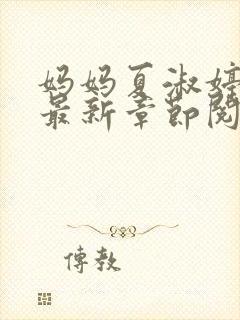 妈妈夏淑婷
最新章节阅
傅教